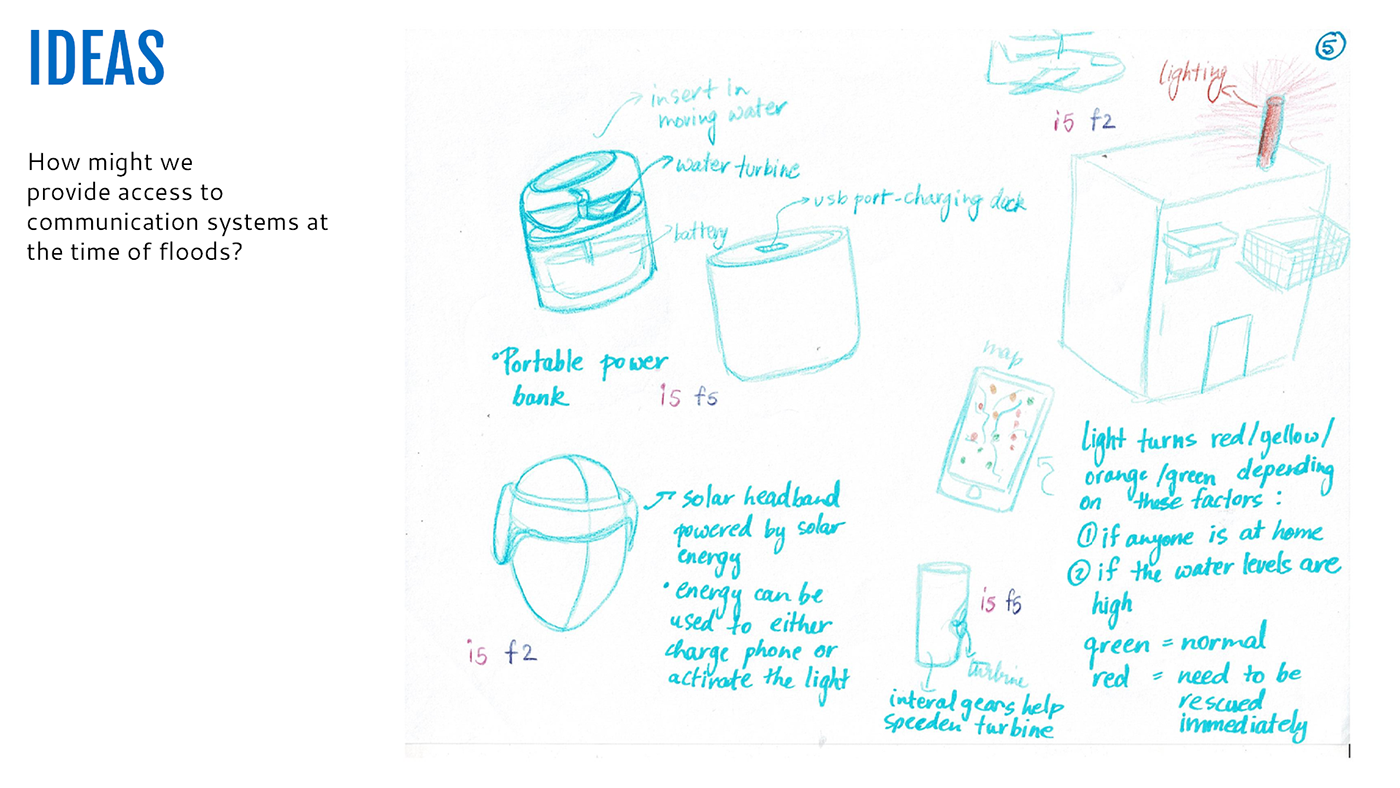 IDEAS
How might we
provide access to
communication systems at
the time of floods?
5
insert in
moving water
water turbine
battery
usb port-charging dock
Portable power
bank
i5 f5
i5 f2
lighting
map
solar headband
powered by solar
energy
energy can be
used to either
charge phone or
activate the light
i5 f2
i5 f5
turbine
interal gears help
speeden turbine
Light turns red/yellow/
orange/green depending
on these factors :
1 if anyone is at home
2 if the water levels are
high
green = normal
red = need to be
rescued
immediately